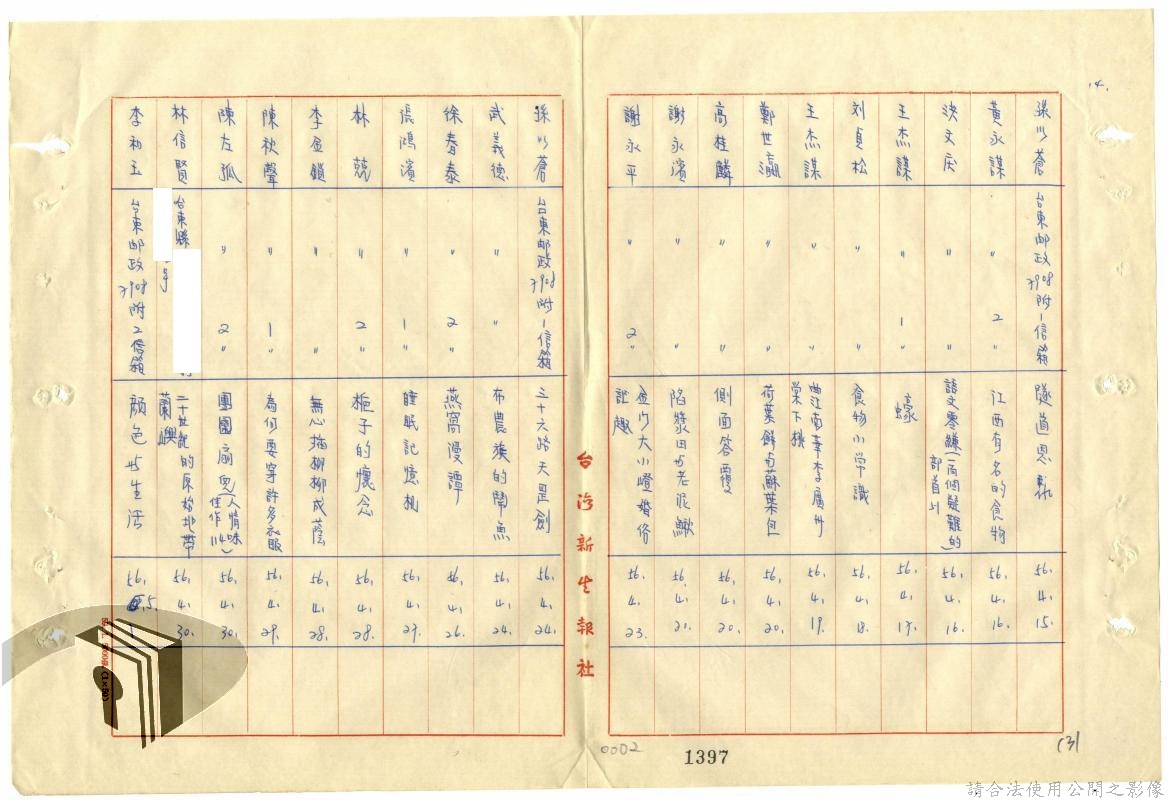 14.
孫以蒼 台東邮政7908附1信箱 隧道思 56. 4. 15.
黃永謀 〃 2 〃 江西有名的食物 56. 4. 16.
洪文 〃 〃 語文零縑(兩個疑難的部首) 56. 4. 16.
王杰謀 〃 1 〃 蠔 56. 4. 17.
刘貞松 〃 〃 食物小常識 56. 4. 18.
王杰謀 〃 〃 曲江南華李廣州棠下桃 56. 4. 19.
鄭世瀛 〃 〃 荷葉餅与蘇葉包 56. 4. 20.
高桂麟 〃 〃 側面答覆 56. 4. 20.
謝永濱 〃 〃 陷漿田与老泥鰍 56. 4. 21.
謝永平 〃 2 〃 金门大小嶝婚俗誌趣 56. 4. 23.
台灣新生報社
孫以蒼 台東邮政7908附1信箱 三十六路天罡劍 56. 4. 24.
武義德 〃 〃 布農族的鬧魚 56. 4. 24.
徐春泰 〃 2 〃 燕窩漫譚 56. 4. 26.
張鴻濱 〃 1 〃 睡眠記憶机 56. 4. 27.
林兢 〃 2 〃 梔子的懷念 56. 4. 28.
李金鎖 〃 〃 無心插柳柳成蔭 56. 4. 28.
陳秋聲 〃 1 〃 為何要穿許多衣服 56. 4. 29.
陳左弧 〃 2 〃 團團扇兜(人情味佳作114) 56. 4. 30.
林信賢 台東縣 二十世紀的原始地帶蘭嶼 56. 4. 30.
李初玉 台東邮政7908附2信箱 顏色与生活 56. 5. 1
0002
1397
(3)
請合法使用公開之影像